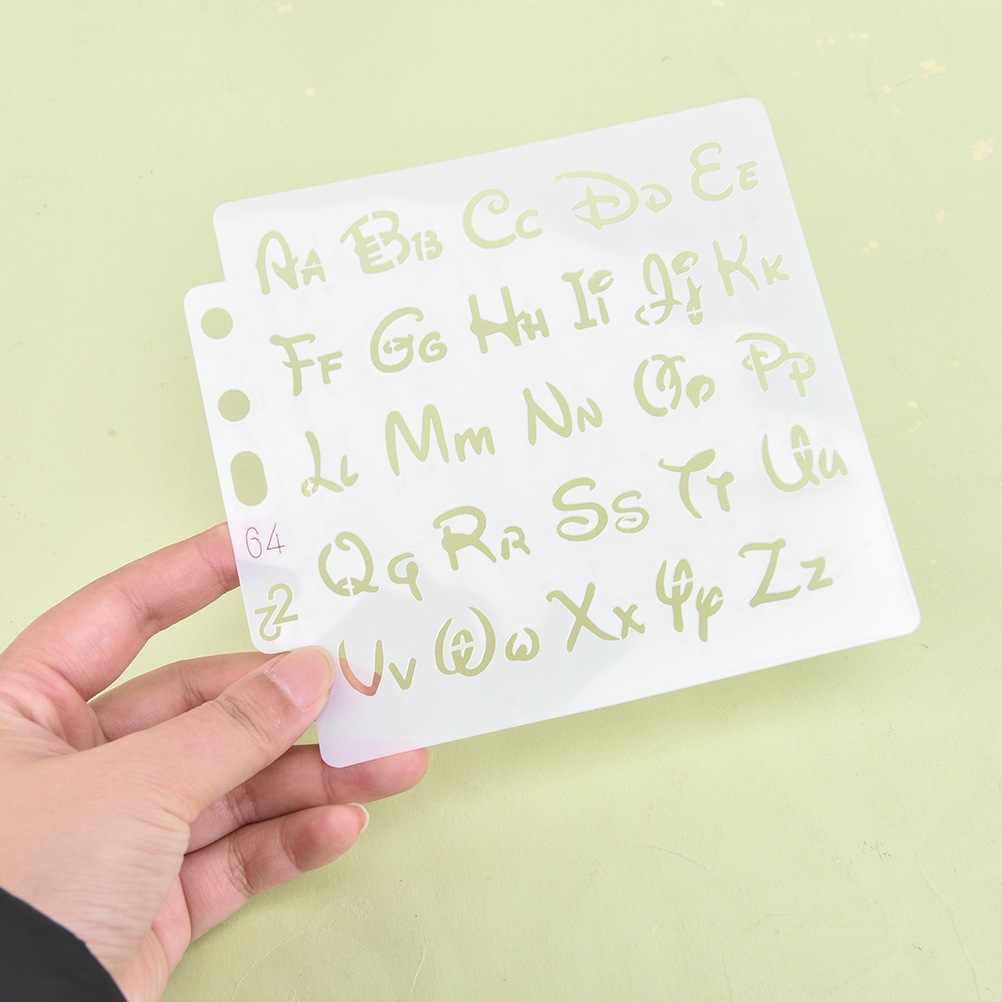 Aa Bb Cc Dd Ee
Ff Gg Hh Ii Jj Kk
Ll Mm Nn Oo Pp
Qq Rr Ss Tt Uu
Vv Ww Xx Yy Zz
64